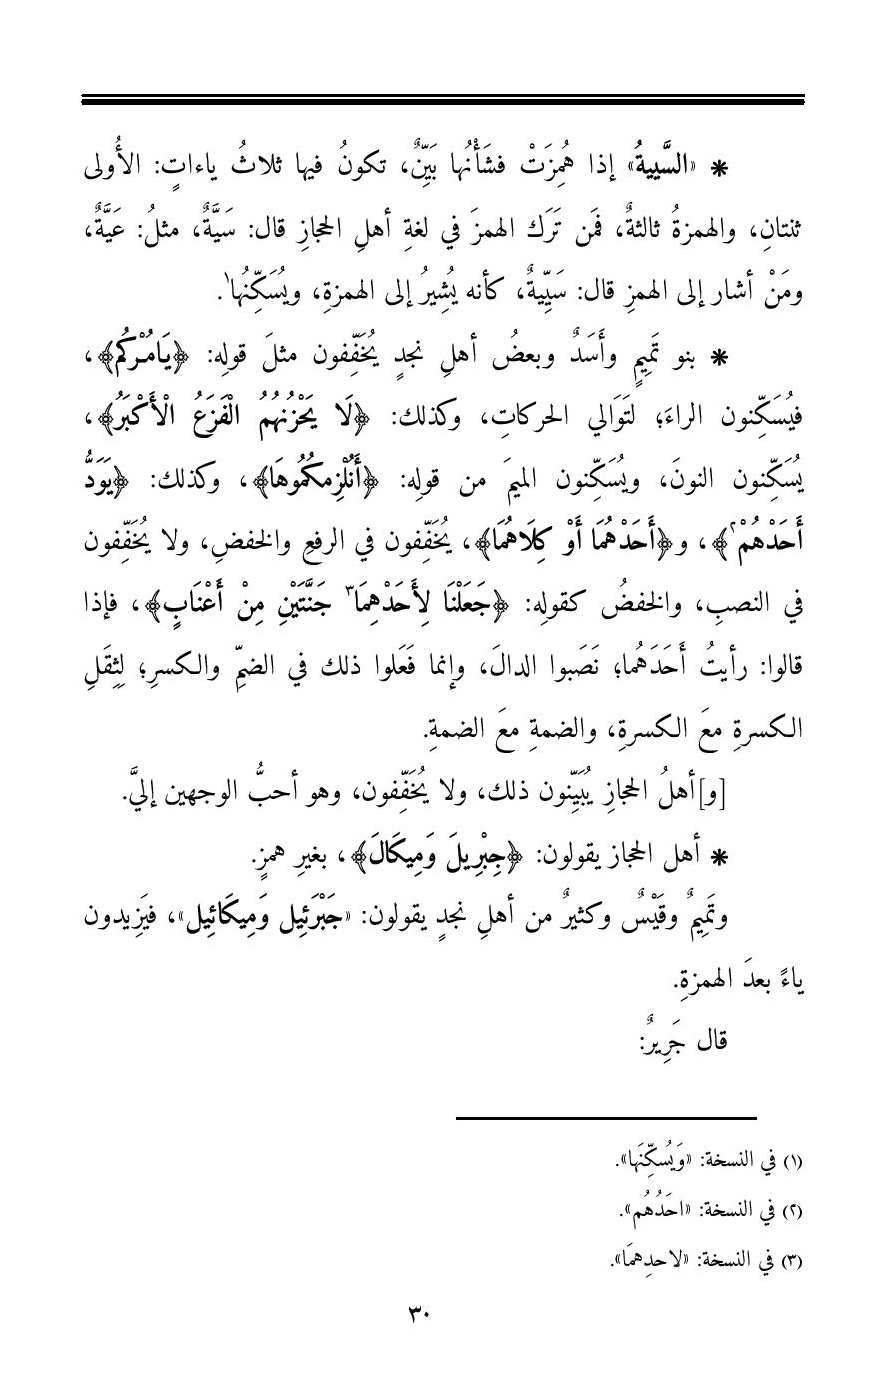 * «السَّييةُ» إذا هُمِزَتْ فشَأْنُها بَيِّنٌ، تكونُ فيها ثلاثُ ياءاتٍ: الأُولى
ثنتانِ، والهمزةُ ثالثةٌ، فمَن تَرَك الهمزَ في لغةِ أهلِ الحجازِ قال: سَيَّةٌ، مثلُ: عَيَّةٌ،
ومَنْ أشار إلى الهمزِ قال: سَيِّيةٌ، كأنه يُشِيرُ إلى الهمزةِ، ويُسَكِّنُها١.
* بنو تَمِيمٍ وأَسَدٌ وبعضُ أهلِ نجدٍ يُخَفِّفون مثلَ قولِه: ﴿يَامُرْكُم﴾،
فيُسَكِّنون الراءَ؛ لتَوَالي الحركاتِ، وكذلك: ﴿لَا يَحْزُنْهُمُ الْفَزَعُ الْأَكْبَرُ﴾،
يُسَكِّنون النونَ، ويُسَكِّنون الميمَ من قولِه: ﴿أَنُلْزِمكُمُوهَا﴾، وكذلك: ﴿يَوَدُّ
أَحَدْهُمْ٢﴾، و﴿أَحَدْهُمَا أَوْ كِلَاهُمَا﴾، يُخَفِّفون في الرفعِ والخفضِ، ولا يُخَفِّفون
في النصبِ، والخفضُ كقولِه: ﴿جَعَلْنَا لِأَحَدْهِمَا٣ جَنَّتَيْنِ مِنْ أَعْنَابٍ﴾، فإذا
قالوا: رأيتُ أَحَدَهُما؛ نَصَبوا الدالَ، وإنما فَعَلوا ذلك في الضمِّ والكسرِ؛ لِثِقَلِ
الكسرةِ معَ الكسرةِ، والضمةِ معَ الضمةِ.
[و]أهلُ الحجازِ يُبَيِّنون ذلك، ولا يُخَفِّفون، وهو أحبُّ الوجهين إليَّ.
* أهل الحجاز يقولون: ﴿جِبْرِيلَ وَمِيكَالَ﴾، بغيرِ همزٍ.
وتَمِيمٌ وقَيْسٌ وكثيرٌ من أهلِ نجدٍ يقولون: «جَبْرَئِيل وَمِيكَائِيل»، فيَزِيدون
ياءً بعدَ الهمزةِ.
قال جَرِيرٌ:
(١) في النسخة: «وَيُسكِّنَها».
(٢) في النسخة: «احَدُهُم».
(٣) في النسخة: «لاحدِهمَا».
٣٠